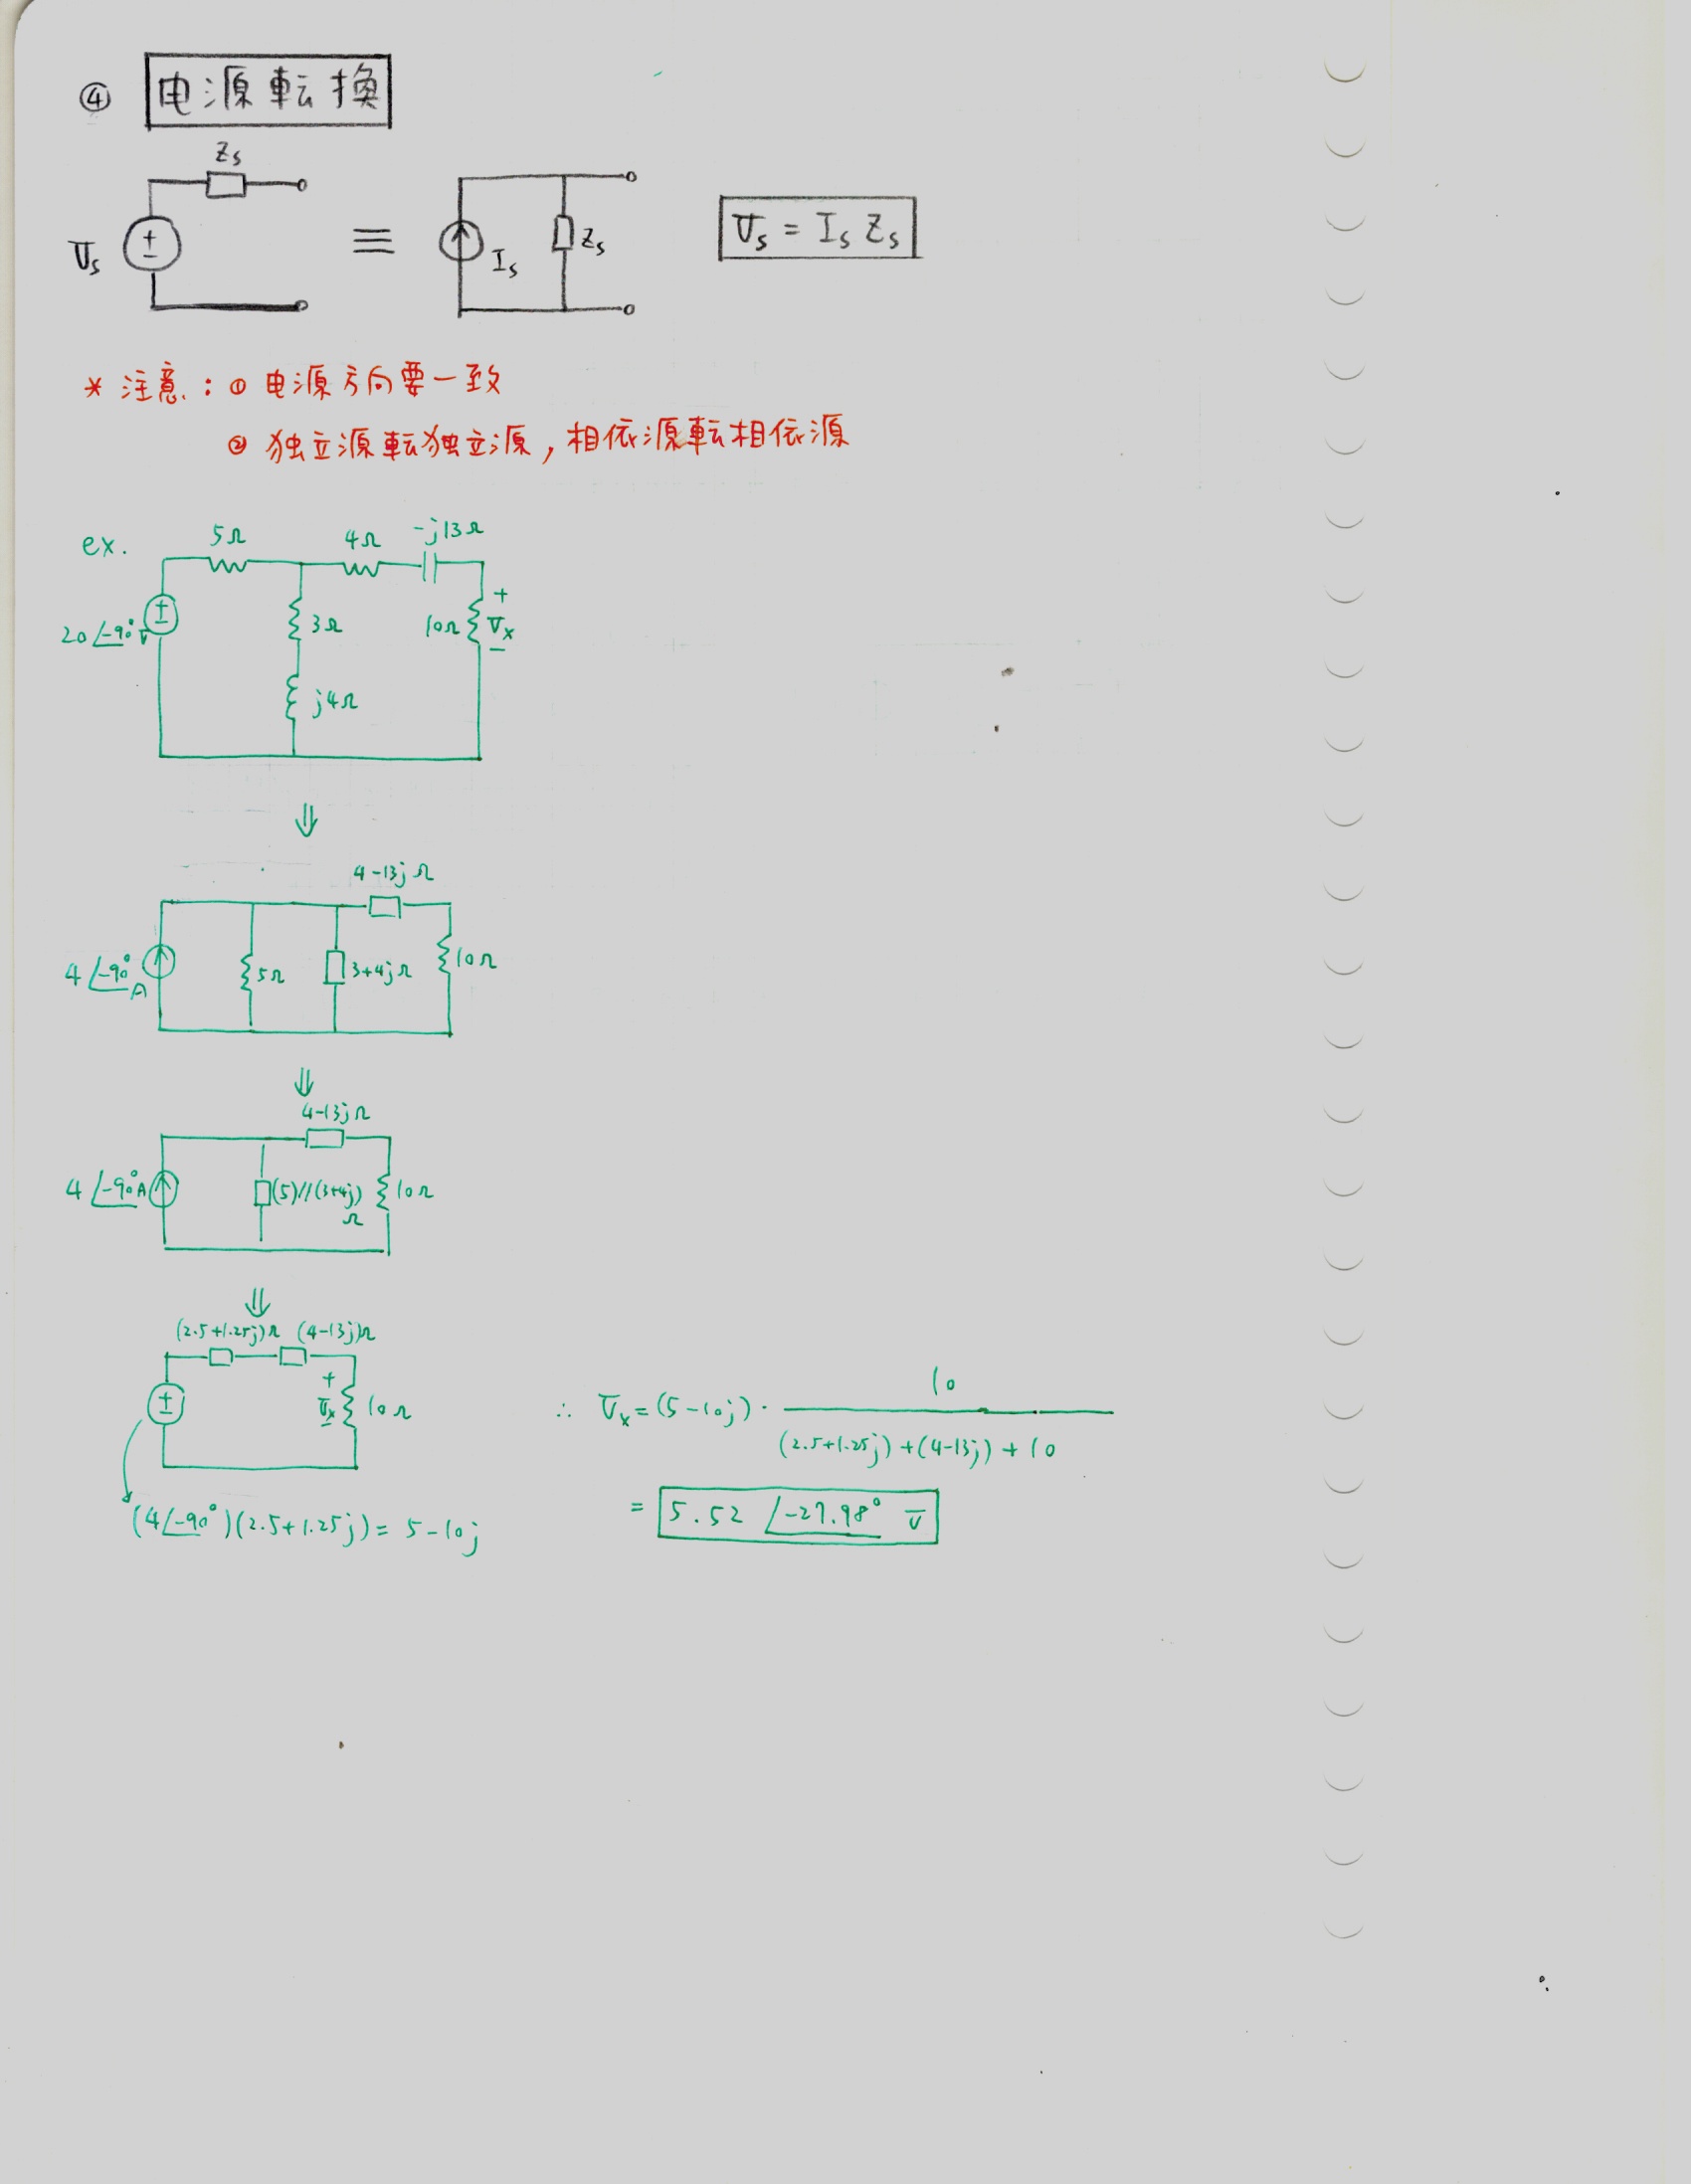 ④ 电源転換
Zs
Vs + −
≡
Is Zs
Vs = Is Zs
* 注意: ① 电源方向要一致
② 独立源転独立源,相依源転相依源
ex.
5Ω 4Ω -j13Ω
20∠-90° V + −
3Ω 10Ω + Vx −
j4Ω
⇓
4-13jΩ
4∠-90° A 5Ω 3+4jΩ 10Ω
⇓
4-13jΩ
4∠-90°A (5)//(3+4j) Ω 10Ω
⇓
(2.5+1.25j)Ω (4-13j)Ω
+ − + Vx − 10Ω
(4∠-90°)(2.5+1.25j) = 5-10j
∴ Vx = (5-10j) · 10 / (2.5+1.25j)+(4-13j)+10
= 5.52 ∠-27.98° V